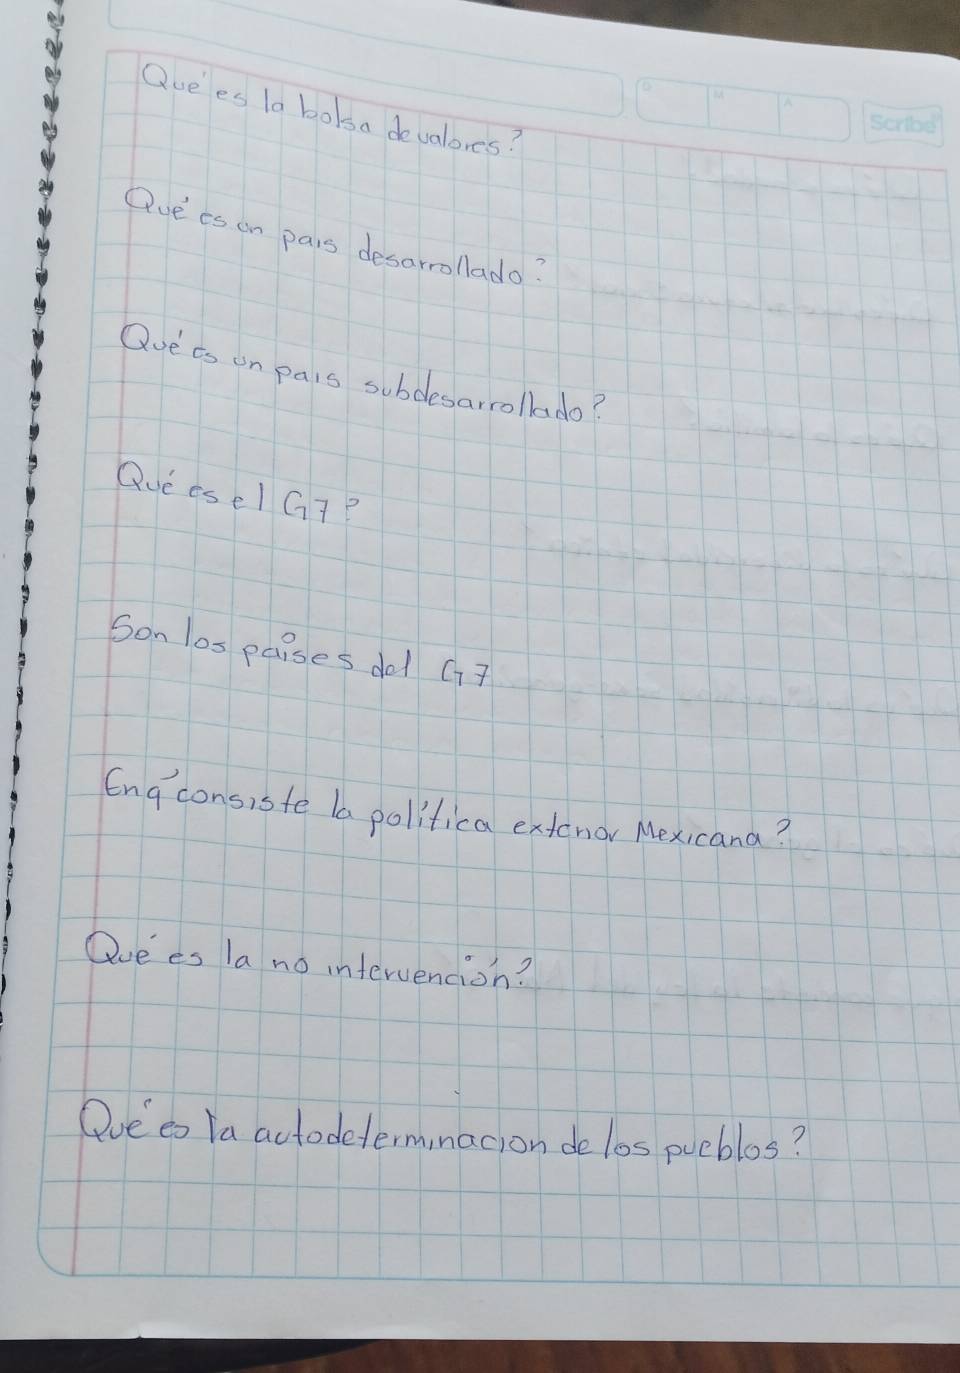 D M A
Scribe
Qué es la bolsa de valores?
Qué es un pais desarrollado?
Qué es un pais subdesarrollado?
Qué es el G7?
Son los países del G7
En q' consiste la política exterior Mexicana?
Qué es la no intervención?
Qué es la autodeterminacion de los pueblos?